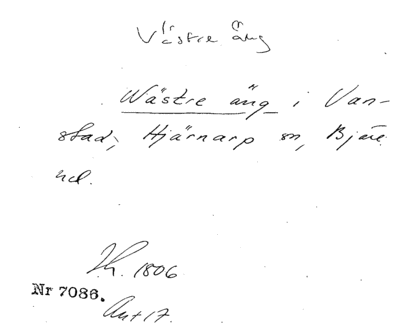 Västre äng
Wästre äng i Van-
stad, Hjärnarp sn, Bjäre
hd.
1806
Nr 7086.
Akt 17.